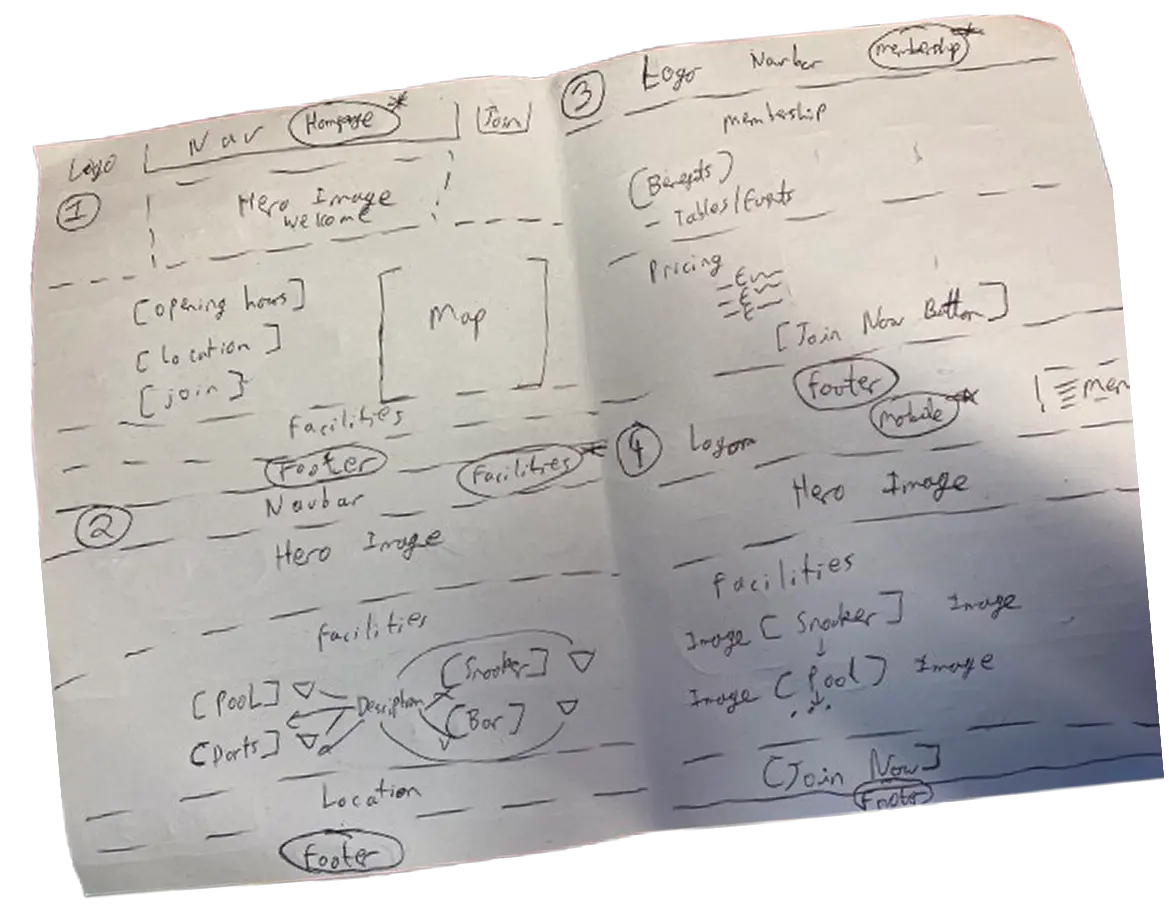 Logo Nav Homepage* [Join]
1
Hero Image
welcome
[opening hours]
Map
[Location]
[join]
Facilities
Footer
Facilities*
2
Navbar
Hero Image
Facilities
[Pool] Desciption [Snooker]
[Darts] [Bar]
Location
Footer
3 Logo Navbar membership*
membership
[Benefits]
- Tables/Events
Pricing
- £
- £
- £
[Join Now Button]
Footer
mobile*
4 Logo
Hero Image
Facilities
Image [Snooker] Image
Image [Pool] Image
...
[Join Now]
Footer